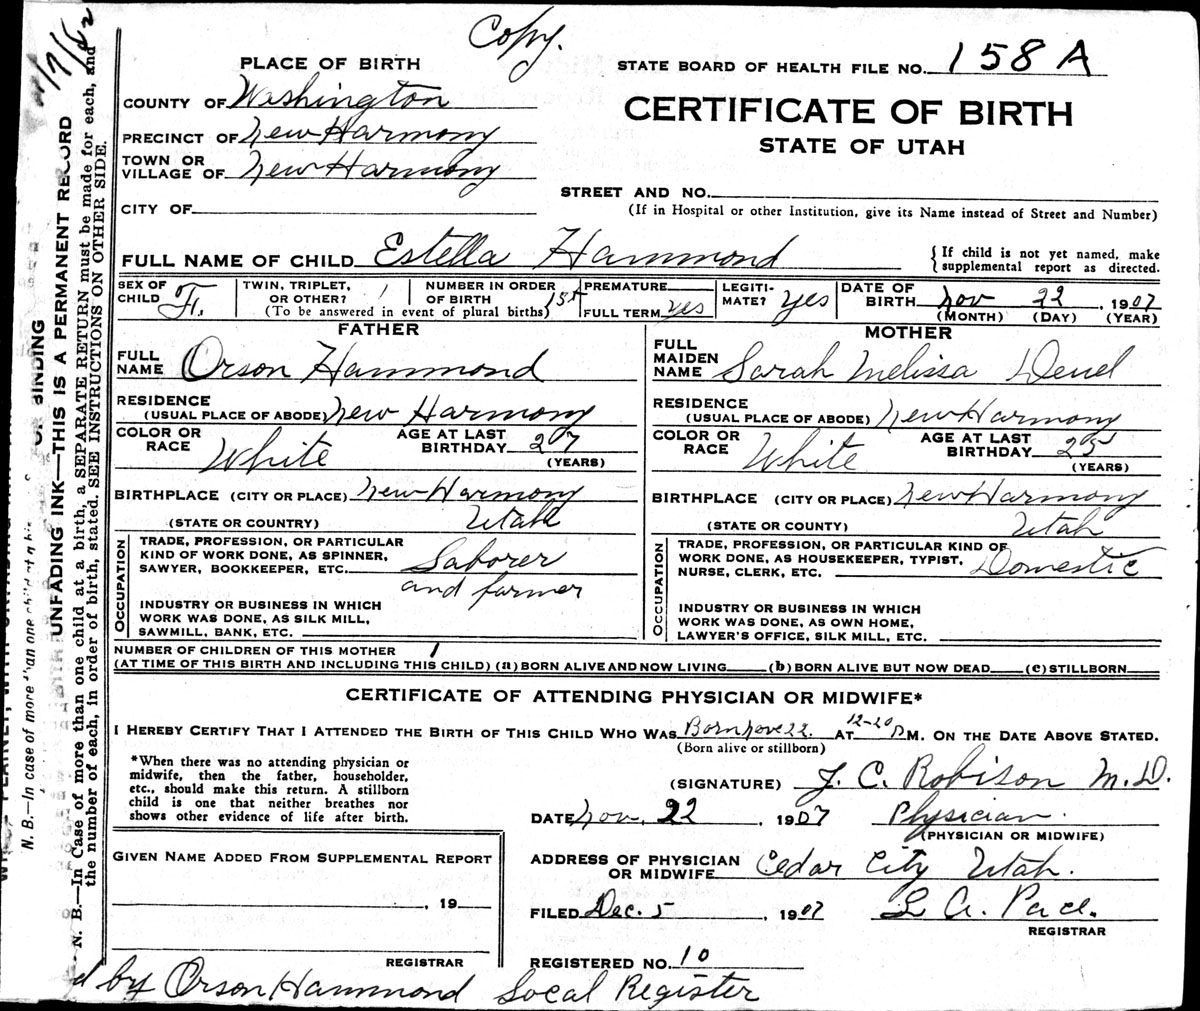 Copy.
PLACE OF BIRTH
STATE BOARD OF HEALTH FILE NO. 158 A
COUNTY OF Washington
CERTIFICATE OF BIRTH
PRECINCT OF New Harmony
STATE OF UTAH
TOWN OR
VILLAGE OF New Harmony
STREET AND NO.
CITY OF
(If in Hospital or other Institution, give its Name instead of Street and Number)
FULL NAME OF CHILD Estella Hammond
{If child is not yet named, make
supplemental report as directed.
SEX OF
CHILD F.
TWIN, TRIPLET,
OR OTHER? 1
NUMBER IN ORDER
OF BIRTH 1st
(To be answered in event of plural births)
PREMATURE
FULL TERM yes
LEGITI-
MATE? yes
DATE OF
BIRTH Nov 22, 1907
(MONTH) (DAY) (YEAR)
FATHER
FULL
NAME Orson Hammond
RESIDENCE
(USUAL PLACE OF ABODE) New Harmony
COLOR OR
RACE White
AGE AT LAST
BIRTHDAY 27
(YEARS)
BIRTHPLACE (CITY OR PLACE) New Harmony
(STATE OR COUNTRY) Utah
OCCUPATION
TRADE, PROFESSION, OR PARTICULAR
KIND OF WORK DONE, AS SPINNER,
SAWYER, BOOKKEEPER, ETC. Laborer
and farmer
INDUSTRY OR BUSINESS IN WHICH
WORK WAS DONE, AS SILK MILL,
SAWMILL, BANK, ETC.
MOTHER
FULL
MAIDEN
NAME Sarah Melissa Deuel
RESIDENCE
(USUAL PLACE OF ABODE) New Harmony
COLOR OR
RACE White
AGE AT LAST
BIRTHDAY 25
(YEARS)
BIRTHPLACE (CITY OR PLACE) New Harmony
(STATE OR COUNTY) Utah
OCCUPATION
TRADE, PROFESSION, OR PARTICULAR KIND OF
WORK DONE, AS HOUSEKEEPER, TYPIST,
NURSE, CLERK, ETC. Domestic
INDUSTRY OR BUSINESS IN WHICH
WORK WAS DONE, AS OWN HOME,
LAWYER'S OFFICE, SILK MILL, ETC.
NUMBER OF CHILDREN OF THIS MOTHER 1
(AT TIME OF THIS BIRTH AND INCLUDING THIS CHILD) (a) BORN ALIVE AND NOW LIVING (b) BORN ALIVE BUT NOW DEAD (c) STILLBORN
CERTIFICATE OF ATTENDING PHYSICIAN OR MIDWIFE*
I HEREBY CERTIFY THAT I ATTENDED THE BIRTH OF THIS CHILD WHO WAS Born Nove 22. AT 12-20 P M. ON THE DATE ABOVE STATED.
(Born alive or stillborn)
*When there was no attending physician or
midwife, then the father, householder,
etc., should make this return. A stillborn
child is one that neither breathes nor
shows other evidence of life after birth.
(SIGNATURE) J. C. Robison M.D.
DATE Nov. 22, 1907 Physician.
(PHYSICIAN OR MIDWIFE)
GIVEN NAME ADDED FROM SUPPLEMENTAL REPORT
, 19
REGISTRAR
ADDRESS OF PHYSICIAN
OR MIDWIFE Cedar City Utah.
FILED Dec. 5, 1907 L A. Pace.
REGISTRAR
REGISTERED NO. 10
by Orson Hammond Local Register
BINDING
UNFADING INK—THIS IS A PERMANENT RECORD
N. B.—In case of more than one child at a
N. B.—In Case of more than one child at a birth, a SEPARATE RETURN must be made for each, and
the number of each, in order of birth, stated. SEE INSTRUCTIONS ON OTHER SIDE.